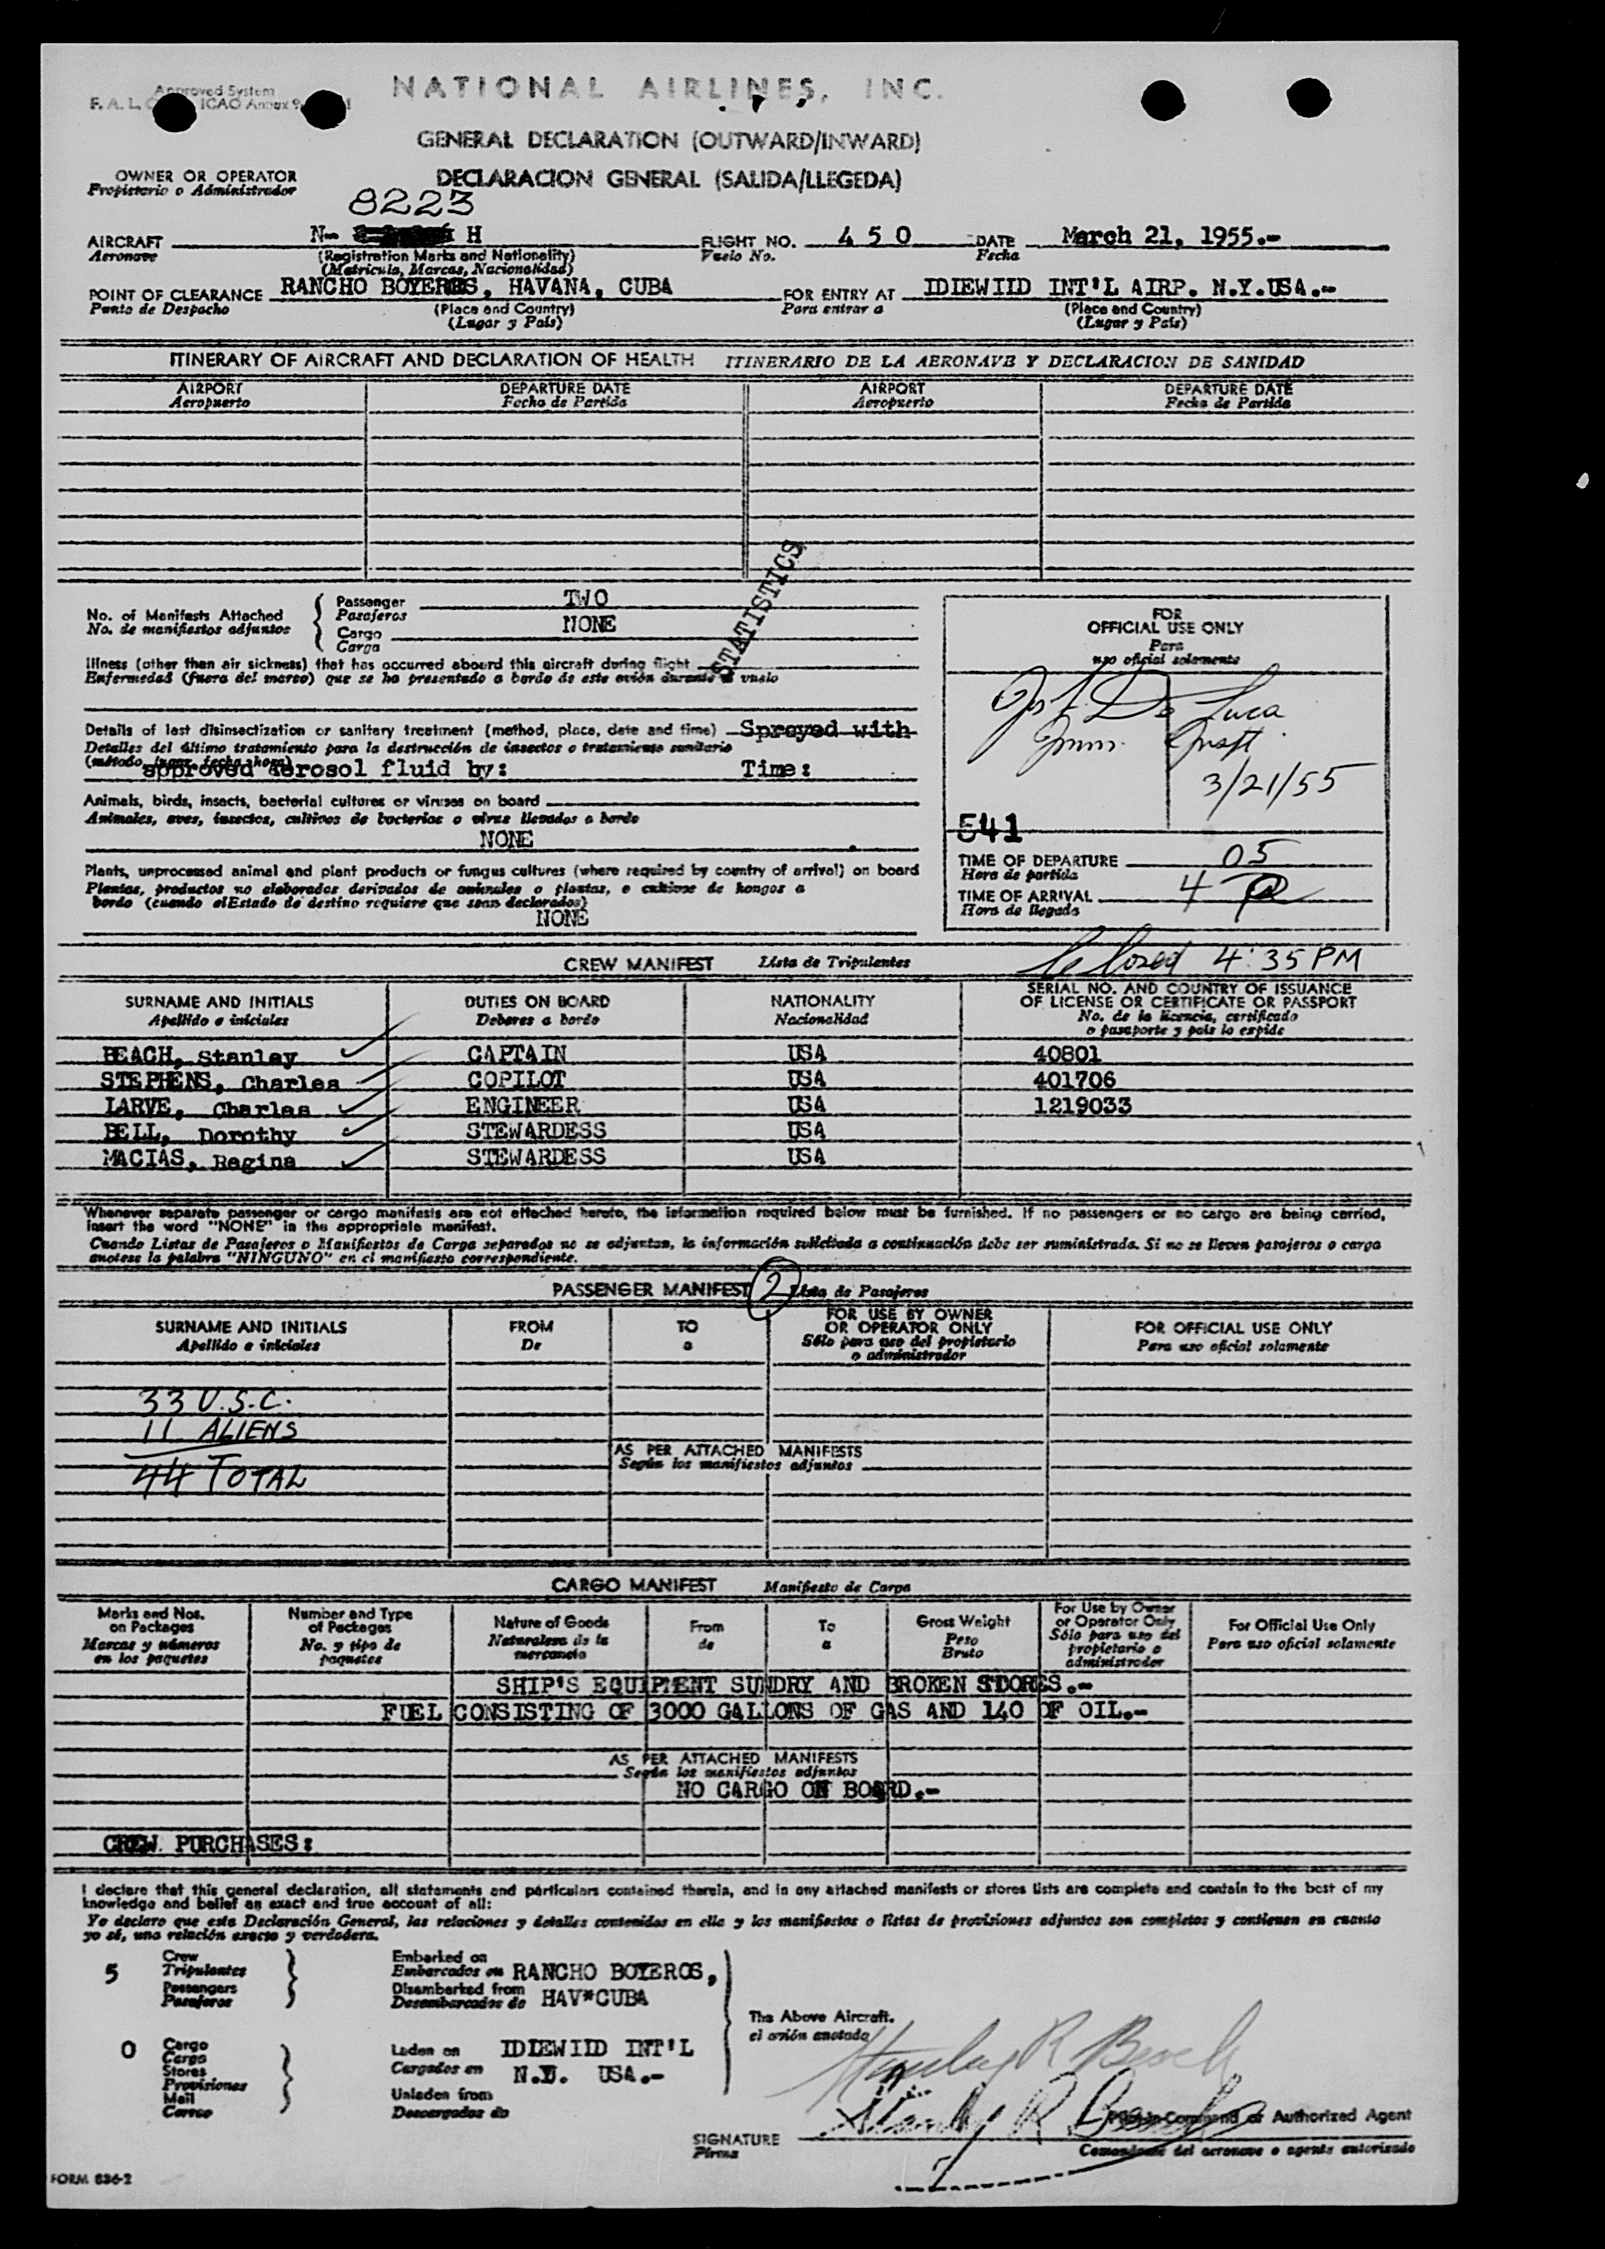 NATIONAL AIRLINES, INC.
Approved System
F. A. L. ICAO Annex 9
GENERAL DECLARATION (OUTWARD/INWARD)
OWNER OR OPERATOR
Propietario o Administrador
DECLARACION GENERAL (SALIDA/LLEGEDA)
8223
AIRCRAFT N- H FLIGHT NO. 450 DATE March 21, 1955.-
Aeronave (Registration Marks and Nationality) Vuelo No. Fecha
(Matricula, Marcas, Nacionalidad)
POINT OF CLEARANCE RANCHO BOYEROS, HAVANA, CUBA FOR ENTRY AT IDIEWIID INT'L AIRP. N.Y.USA.-
Punto de Despacho (Place and Country) Para entrar a (Place and Country)
(Lugar y País) (Lugar y País)
ITINERARY OF AIRCRAFT AND DECLARATION OF HEALTH ITINERARIO DE LA AERONAVE Y DECLARACION DE SANIDAD
AIRPORT DEPARTURE DATE AIRPORT DEPARTURE DATE
Aeropuerto Fecha de Partida Aeropuerto Fecha de Partida
STATISTICS
No. of Manifests Attached
No. de manifiestos adjuntos
Passenger TWO
Pasajeros
Cargo NONE
Carga
Illness (other than air sickness) that has occurred aboard this aircraft during flight
Enfermedad (fuera del mareo) que se ha presentado a bordo de este avión durante el vuelo
Details of last disinsectization or sanitary treatment (method, place, date and time) Sprayed with
Detalles del último tratamiento para la destrucción de insectos o tratamiento sanitario
(método, lugar, fecha, hora)
approved aerosol fluid by: Time:
Animals, birds, insects, bacterial cultures or viruses on board
Animales, aves, insectos, cultivos de bacterias o virus llevados a bordo
NONE
Plants, unprocessed animal and plant products or fungus cultures (where required by country of arrival) on board
Plantas, productos no elaborados derivados de animales o plantas, o cultivos de hongos a
bordo (cuando el Estado de destino requiere que sean declarados)
NONE
FOR
OFFICIAL USE ONLY
Para
uso oficial solamente
De Luca
Imm. Inspt.
3/21/55
541
TIME OF DEPARTURE 05
Hora de partida
TIME OF ARRIVAL 4
Hora de llegada
4:35 PM
CREW MANIFEST Lista de Tripulantes
SURNAME AND INITIALS DUTIES ON BOARD NATIONALITY SERIAL NO. AND COUNTRY OF ISSUANCE
OF LICENSE OR CERTIFICATE OR PASSPORT
Apellido e iniciales Deberes a bordo Nacionalidad No. de la licencia, certificado
o pasaporte y país lo expide
BEACH, Stanley CAPTAIN USA 40801
STEPHENS, Charles COPILOT USA 401706
IARVE, Charles ENGINEER USA 1219033
BELL, Dorothy STEWARDESS USA
MACIAS, Regina STEWARDESS USA
Whenever separate passenger or cargo manifests are not attached hereto, the information required below must be furnished. If no passengers or no cargo are being carried,
insert the word "NONE" in the appropriate manifest.
Cuando Listas de Pasajeros o Manifiestos de Carga separados no se adjuntan, la información solicitada a continuación debe ser suministrada. Si no se lleven pasajeros o carga
anotese la palabra "NINGUNO" en el manifiesto correspondiente.
PASSENGER MANIFEST 2 Lista de Pasajeros
SURNAME AND INITIALS FROM TO FOR USE BY OWNER
OR OPERATOR ONLY FOR OFFICIAL USE ONLY
Apellido e iniciales De a Sólo para uso del propietario
o administrador Para uso oficial solamente
33 U.S.C.
11 ALIENS
44 TOTAL
AS PER ATTACHED MANIFESTS
Según los manifiestos adjuntos
CARGO MANIFEST Manifiesto de Carga
Marks and Nos.
on Packages
Marcas y números
en los paquetes
Number and Type
of Packages
No. y tipo de
paquetes
Nature of Goods
Naturaleza de la
mercancía
From
de
To
a
Gross Weight
Peso
Bruto
For Use by Owner
or Operator Only
Sólo para uso del
propietario o
administrador
For Official Use Only
Para uso oficial solamente
SHIP'S EQUIPMENT SUNDRY AND BROKEN STORES.-
FUEL CONSISTING OF 3000 GALLONS OF GAS AND 140 OF OIL.-
AS PER ATTACHED MANIFESTS
Según los manifiestos adjuntos
NO CARGO ON BOARD.-
CREW PURCHASES:
I declare that this general declaration, all statements and particulars contained therein, and in any attached manifests or stores lists are complete and contain to the best of my
knowledge and belief an exact and true account of all:
Yo declaro que esta Declaración General, las relaciones y detalles contenidos en ella y los manifiestos o listas de provisiones adjuntos son completos y contienen en cuanto
yo sé, una relación exacta y verdadera.
5 Crew
Tripulantes
Passengers
Pasajeros
Embarked on
Embarcados en RANCHO BOYEROS,
Disembarked from
Desembarcados de HAV*CUBA
The Above Aircraft.
el avión anotado
0 Cargo
Carga
Stores
Provisiones
Mail
Correo
Laden on IDIEWIID INT'L
Cargados en N.Y. USA.-
Unladen from
Descargados de
Stanley R Beach
Stanley R Beach
Pilot-in-Command or Authorized Agent
SIGNATURE
Firma
Comandante del aeronave o agente autorizado
FORM 836-2